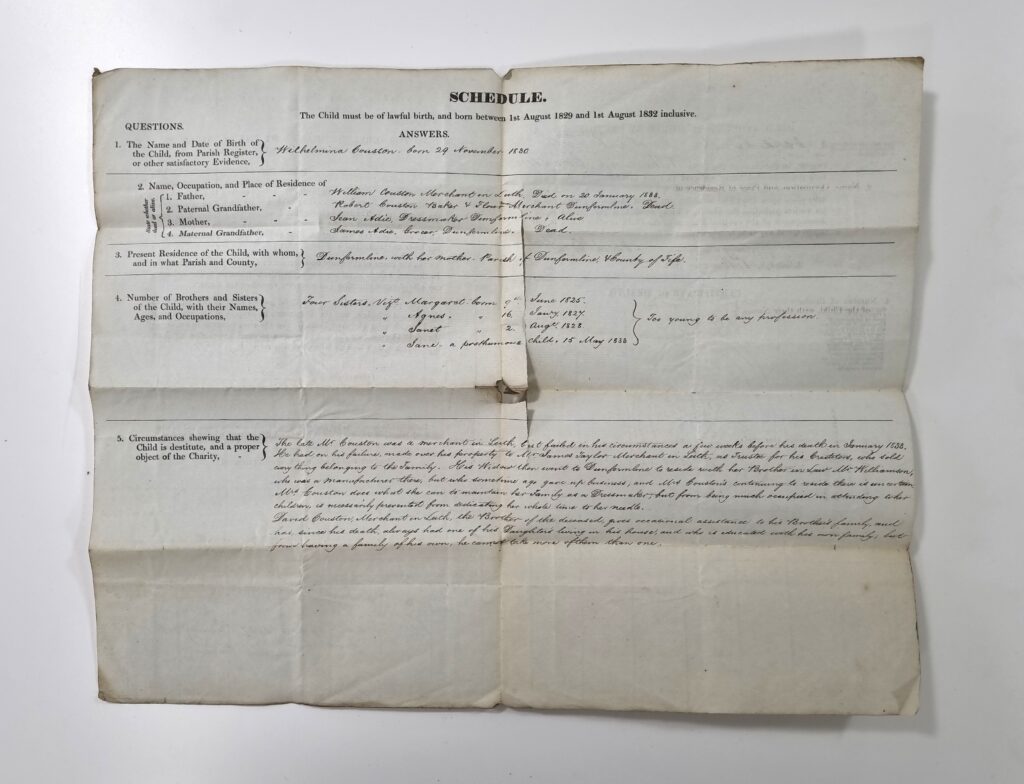 SCHEDULE.
The Child must be of lawful birth, and born between 1st August 1829 and 1st August 1832 inclusive.
QUESTIONS.
ANSWERS.
1. The Name and Date of Birth of
the Child, from Parish Register,
or other satisfactory Evidence,
Wilhelmina Couston. born 29 November 1830
2. Name, Occupation, and Place of Residence of
State whether dead or alive.
1. Father, William Couston Merchant in Leith, Died on 20 January 1833.
2. Paternal Grandfather, Robert Couston Baker & Flour Merchant Dunfermline. Dead.
3. Mother, Jean Adie, Dressmaker Dunfermline, Alive
4. Maternal Grandfather, James Adie, Grocer, Dunfermline. Dead.
3. Present Residence of the Child, with whom,
and in what Parish and County,
Dunfermline, with her mother. Parish of Dunfermline, & County of Fife.
4. Number of Brothers and Sisters
of the Child, with their Names,
Ages, and Occupations,
Four Sisters, Vizt. Margaret born 9th June 1825.
" Agnes. " 16. Jany. 1827.
" Janet " 2. Augt. 1828.
" Jane. a posthumous child. 15 May 1833
Too young to be any profession.
5. Circumstances shewing that the
Child is destitute, and a proper
object of the Charity,
The late Mr. Couston was a merchant in Leith, but failed in his circumstances a few weeks before his death in January 1833.
He had on his failure, made over his property to Mr James Taylor Merchant in Leith, as Trustee for his Creditors, who sold
every thing belonging to the Family. His Widow then went to Dunfermline to reside with her Brother in Law Mr. Williamson,
who was a Manufacturer there, but who sometime ago gave up business, and Mrs Couston's continuing to reside there is uncertain
Mrs Couston does what she can to maintain her Family as a Dressmaker, but from being much occupied in attending to her
children, is necessarily prevented from dedicating her whole time to her needle.
David Couston, Merchant in Leith, the Brother of the deceased, gives occasional assistance to his Brother's family, and
has, since his death, always had one of his Daughters living in his house, and who is educated with his own family, but
from having a family of his own, he cannot take more of them than one.